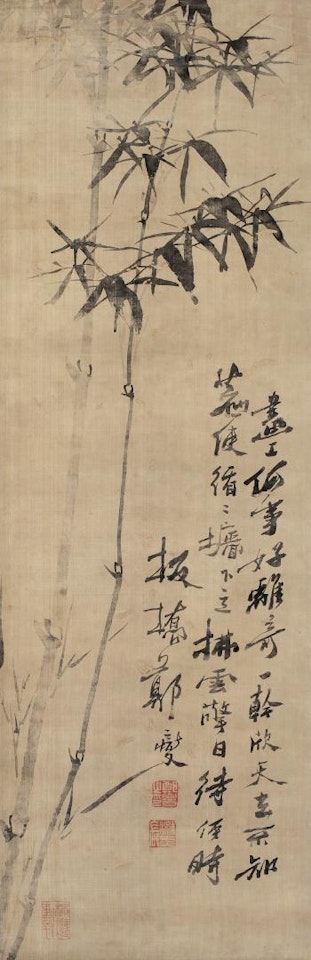 畫工何事好離奇一幹掀天去不知
若使循〻墻下立拂雲擎日待何時
板橋鄭燮